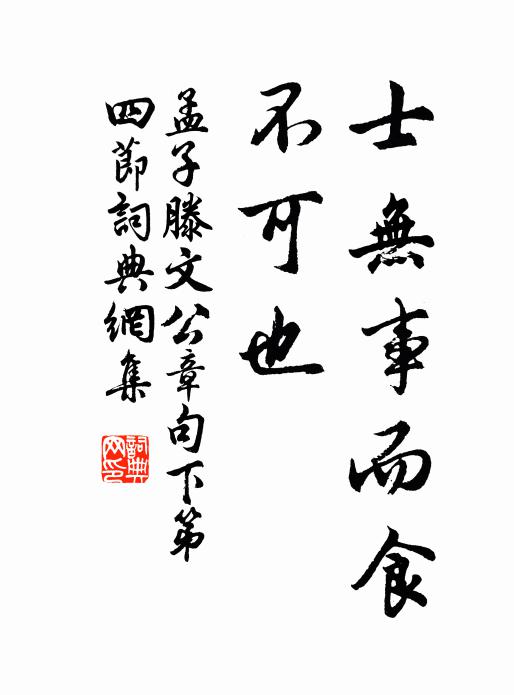 士無事而食
不可也
孟子滕文公章句下第
四節詞典網集
詞典
网印